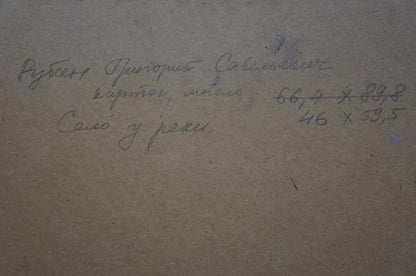 Рубин Григорий Савельевич
картон, масло 66,4 х 89,8
Село у реки. 46 х 59,5